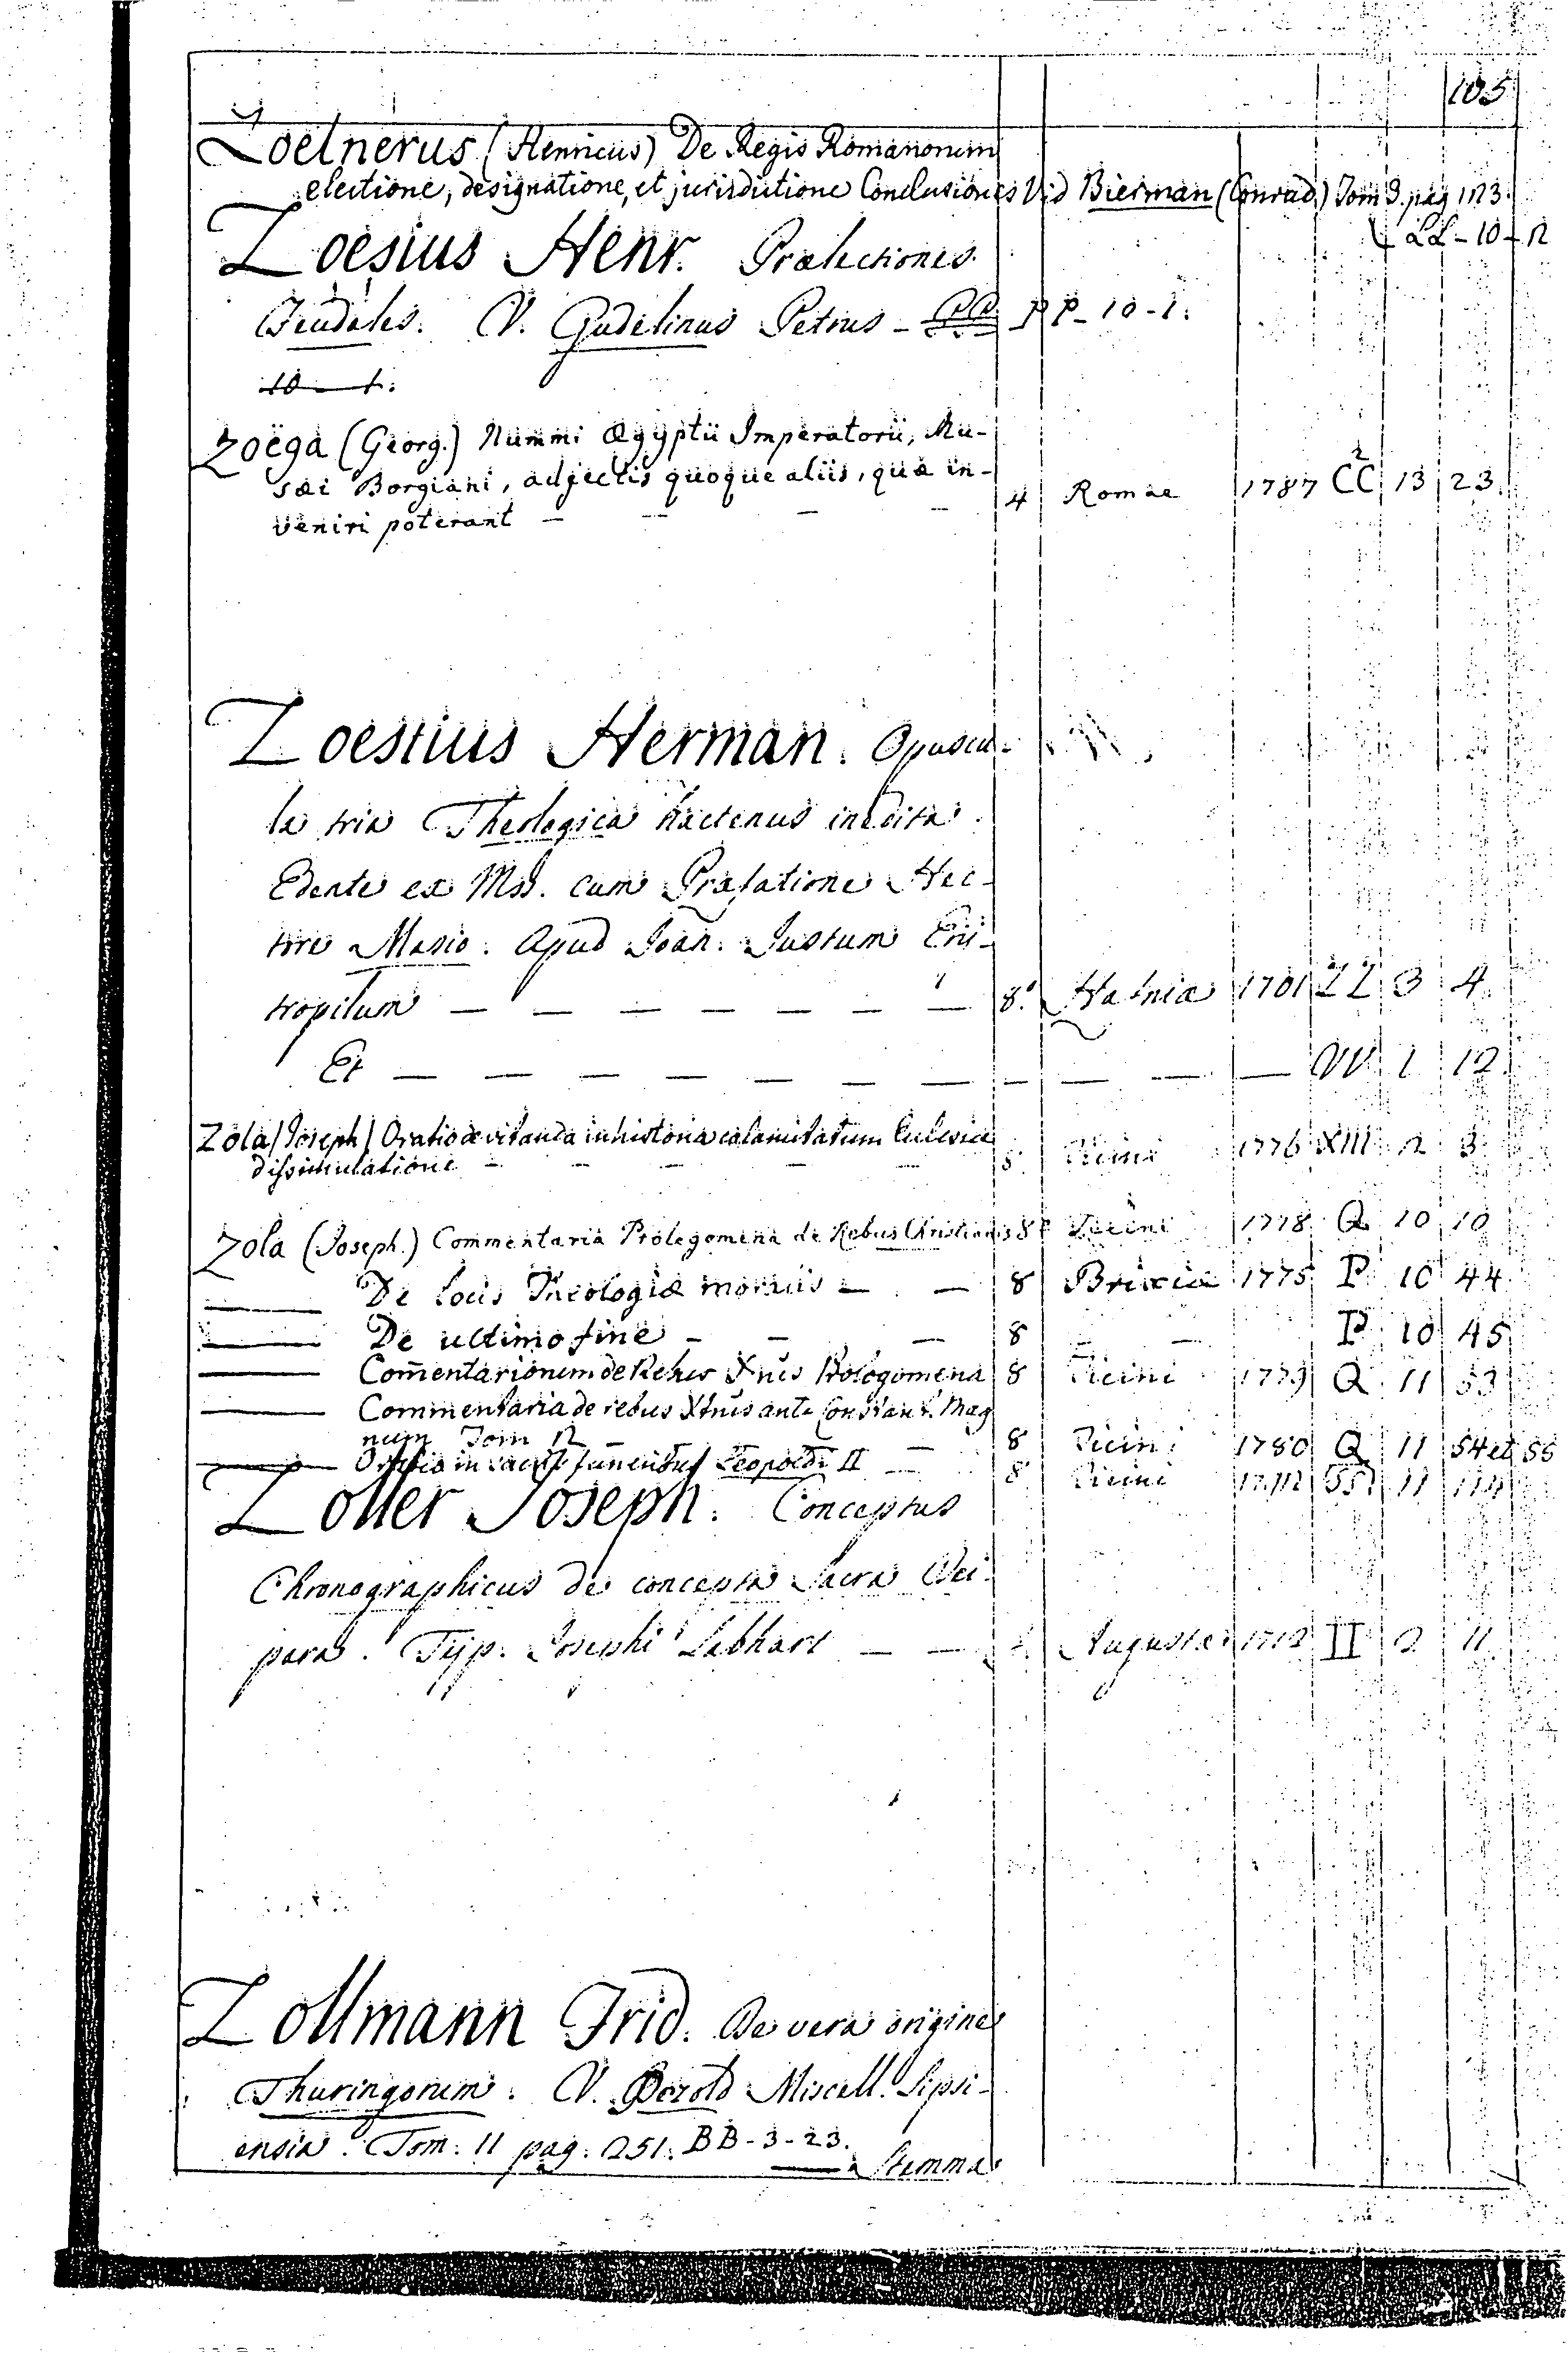 105
Zoelnerus (Henricus) De Regis Romanorum
electione, designatione, et jurisdictione Conclusiones Vid Bierman (Conrad.) Tom 3. pag 1173.
LL - 10 - 12
Zoesius Henr. Prælectiones
Feudales. V. Gudelinus Petrus - PP - 10 - 1.
10 - 1.
Zoëga (Georg.) Nummi Ægyptii Imperatorii, Mu-
sæi Borgiani, adjectis quoque aliis, quæ in-
veniri poterant - - - - 4 Romae 1787 CC 13 23
Zoestius Herman. Opuscu-
la tria Theologica hactenus inedita.
Edente ex Mss. cum Præfatione Hec-
tore Masio. Apud Joan. Justum Eri-
tropilum — — — — — — — 8. Hafniæ 1701 ZZ 3 4
Et — — — — — — — — — — — W 1 12
Zola (Joseph) Oratio de vitanda in historia calamitatum Ecclesiæ
dissimulatione - - - - - 8 Ticini 1776 XIII 2 3
Zola (Joseph.) Commentaria Prolegomena de Rebus Christianis 8 Ticini 1778 Q 10 10
—— De locis Theologiæ moralis — — 8 Brixiæ 1775 P 10 44
—— De ultimo fine - - - 8 - - P 10 45
—— Com̄entariorum de Rebus Xnis Prologomena 8 Ticini 1779 Q 11 53
—— Commentaria de rebus Xtnis ante Constant. Mag
num Tom 2 - - 8 Ticini 1780 Q 11 54 et 55
—— Oratio in sacris funeribus Leopoldi II — 8 Ticini SS 11
Zoller Joseph. Conceptus
Chronographicus de concepta Sacra Dei-
para. Typ. Josephi Labhart — — Augustæ 1712 II 2 11
Zollmann Frid. De vera origine
Thuringorum. V. Pezold Miscell. Lipsi-
ensia. Tom. 11 pag. 251. BB - 3 - 23.
— a Stemma